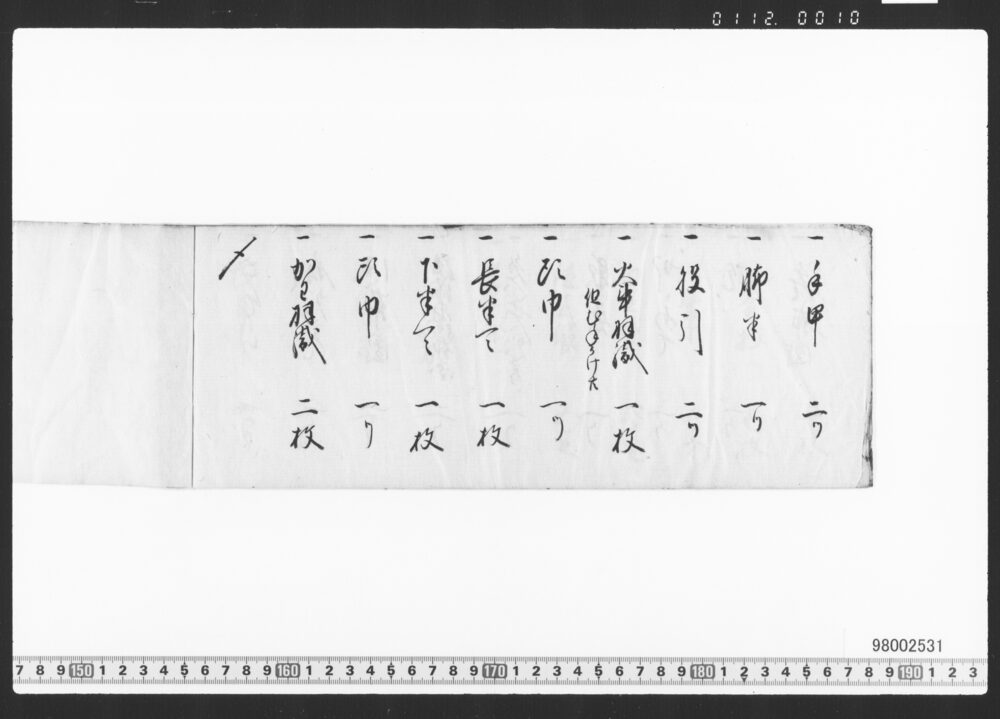 0112.0010
一 手甲 二ツ
一 脚半 一ツ
一 股引 二ツ
一 火事羽織 一枚
一 頭巾 一ツ
一 長半天 一枚
一 下半天 一枚
一 頭巾 一ツ
一 かわ羽織 二枚
〆
98002531
7 8 9 150 1 2 3 4 5 6 7 8 9 160 1 2 3 4 5 6 7 8 9 170 1 2 3 4 5 6 7 8 9 180 1 2 3 4 5 6 7 8 9 190 1 2 3